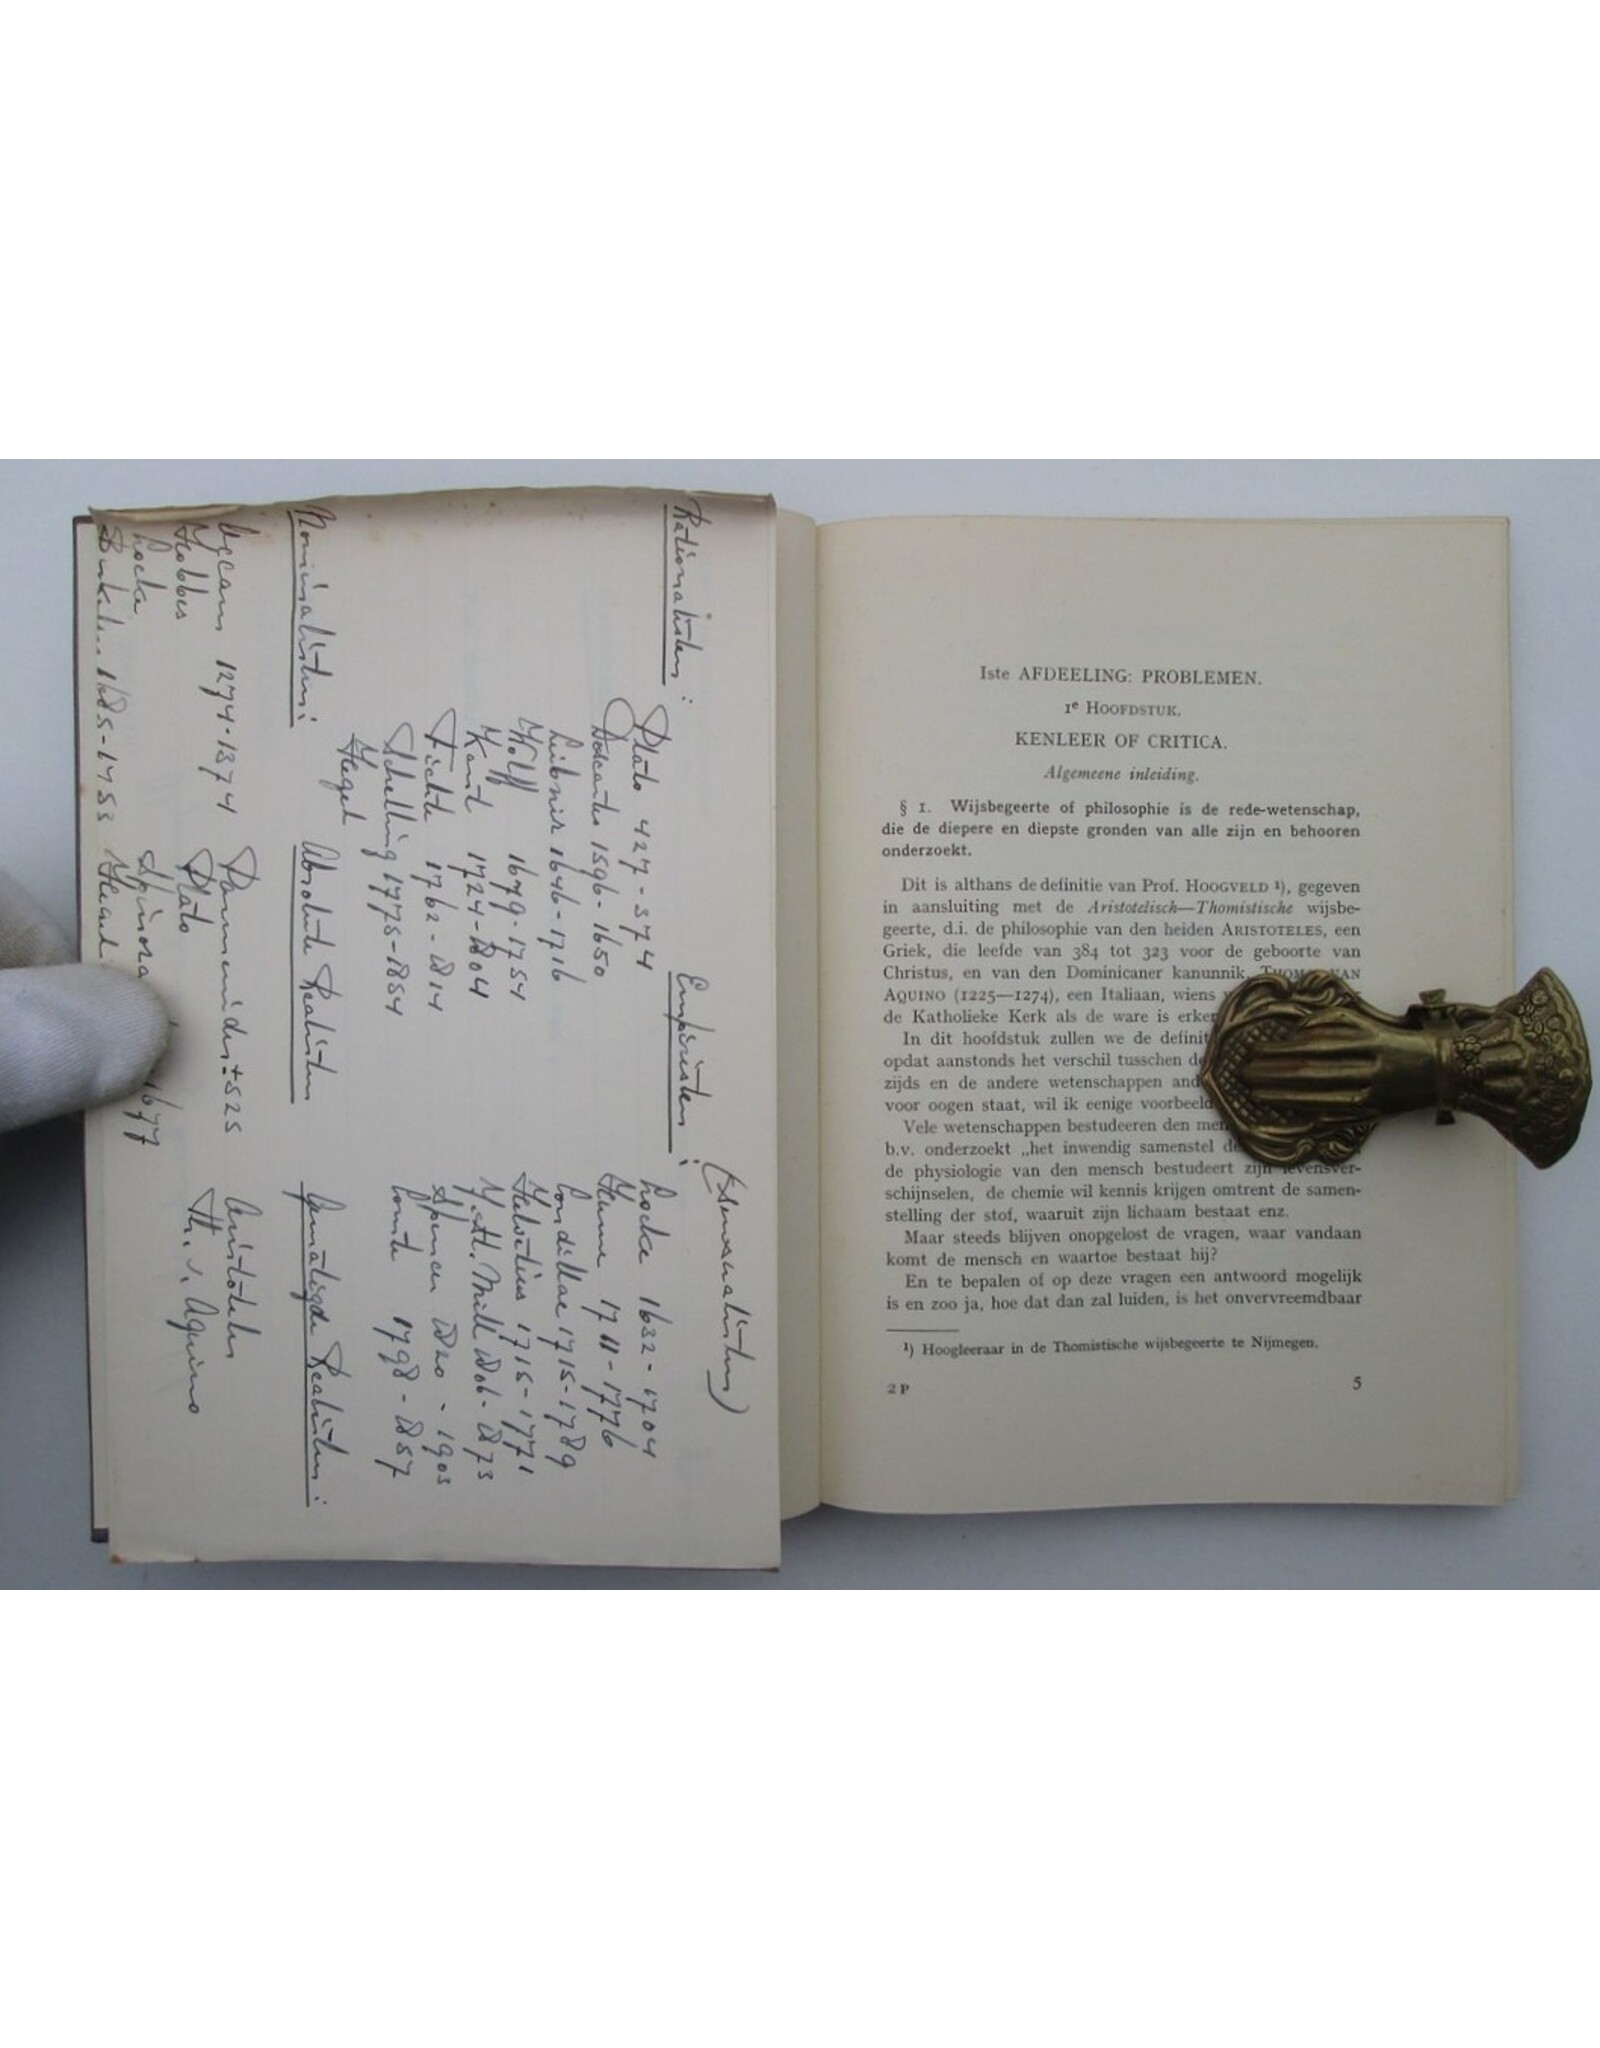 Rationalisten:
Plato 427-374
Descartes 1596-1650
Leibniz 1646-1716
Wolff 1679-1754
Kant 1724-1804
Fichte 1762-1814
Schelling 1775-1854
Hegel
Empiristen: (Sensualisten)
Locke 1632-1704
Hume 1711-1776
Condillac 1715-1789
Helvetius 1715-1771
Mill 1806-1873
Spencer 1820-1903
Comte 1798-1857
Nominalisten:
Occam 1274-1374
Hobbes
Locke
1685-1753
Absolute Realisten
Parmenides ± 525
Plato
Spinoza 1677
Hegel
Gematigde Realisten:
Aristoteles
Th. v. Aquino
Iste AFDEELING: PROBLEMEN.
1e HOOFDSTUK.
KENLEER OF CRITICA.
Algemeene inleiding.
§ 1. Wijsbegeerte of philosophie is de rede-wetenschap,
die de diepere en diepste gronden van alle zijn en behooren
onderzoekt.
Dit is althans de definitie van Prof. HOOGVELD ¹), gegeven
in aansluiting met de Aristotelisch—Thomistische wijsbe-
geerte, d.i. de philosophie van den heiden ARISTOTELES, een
Griek, die leefde van 384 tot 323 voor de geboorte van
Christus, en van den Dominicaner kanunnik, THOMAS VAN
AQUINO (1225—1274), een Italiaan, wiens
de Katholieke Kerk als de ware is
In dit hoofdstuk zullen we de
opdat aanstonds het verschil tusschen
zijds en de andere wetenschappen
voor oogen staat, wil ik eenige
Vele wetenschappen bestudeeren den
b.v. onderzoekt „het inwendig samenstel
de physiologie van den mensch bestudeert zijn levensver-
schijnselen, de chemie wil kennis krijgen omtrent de samen-
stelling der stof, waaruit zijn lichaam bestaat enz.
Maar steeds blijven onopgelost de vragen, waar vandaan
komt de mensch en waartoe bestaat hij?
En te bepalen of op deze vragen een antwoord mogelijk
is en zoo ja, hoe dat dan zal luiden, is het onvervreemdbaar
¹) Hoogleeraar in de Thomistische wijsbegeerte te Nijmegen.
2 P
5